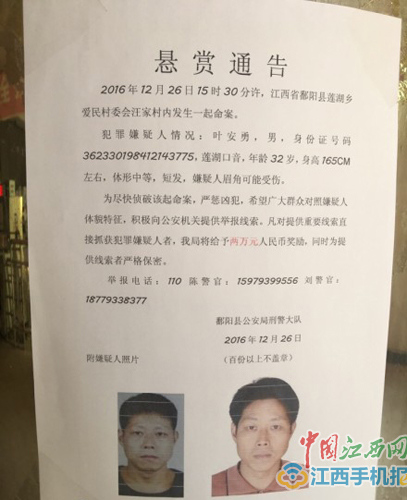 悬赏通告
2016年12月26日15时30分许，江西省鄱阳县莲湖乡
爱民村委会汪家村内发生一起命案。
犯罪嫌疑人情况：叶安勇，男，身份证号码
362330198412143775，莲湖口音，年龄32岁，身高165CM
左右，体形中等，短发，嫌疑人眉角可能受伤。
为尽快侦破该起命案，严惩凶犯，希望广大群众对照嫌疑人
体貌特征，积极向公安机关提供举报线索。凡对提供重要线索直
接抓获犯罪嫌疑人者，我局将给予两万元人民币奖励，同时为提
供线索者严格保密。
举报电话：110 陈警官：15979399556 刘警官：
18779338377
鄱阳县公安局刑警大队
2016年12月26日
附嫌疑人照片
（百份以上不盖章）
中国江西网
江西手机报